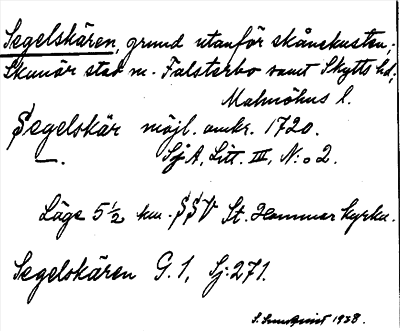 Segelskären, grund utanför skånekusten;
Skanör stad m. Falsterbo samt Skytts hd;
Malmöhus l.
Segelskär möjl. omkr. 1720.
SjA, Litt. III, N:o 2.
Läge 5 1/2 km. SSV St. Hammar kyrka.
Segelskären G. 1, Sj: 271.
1928.